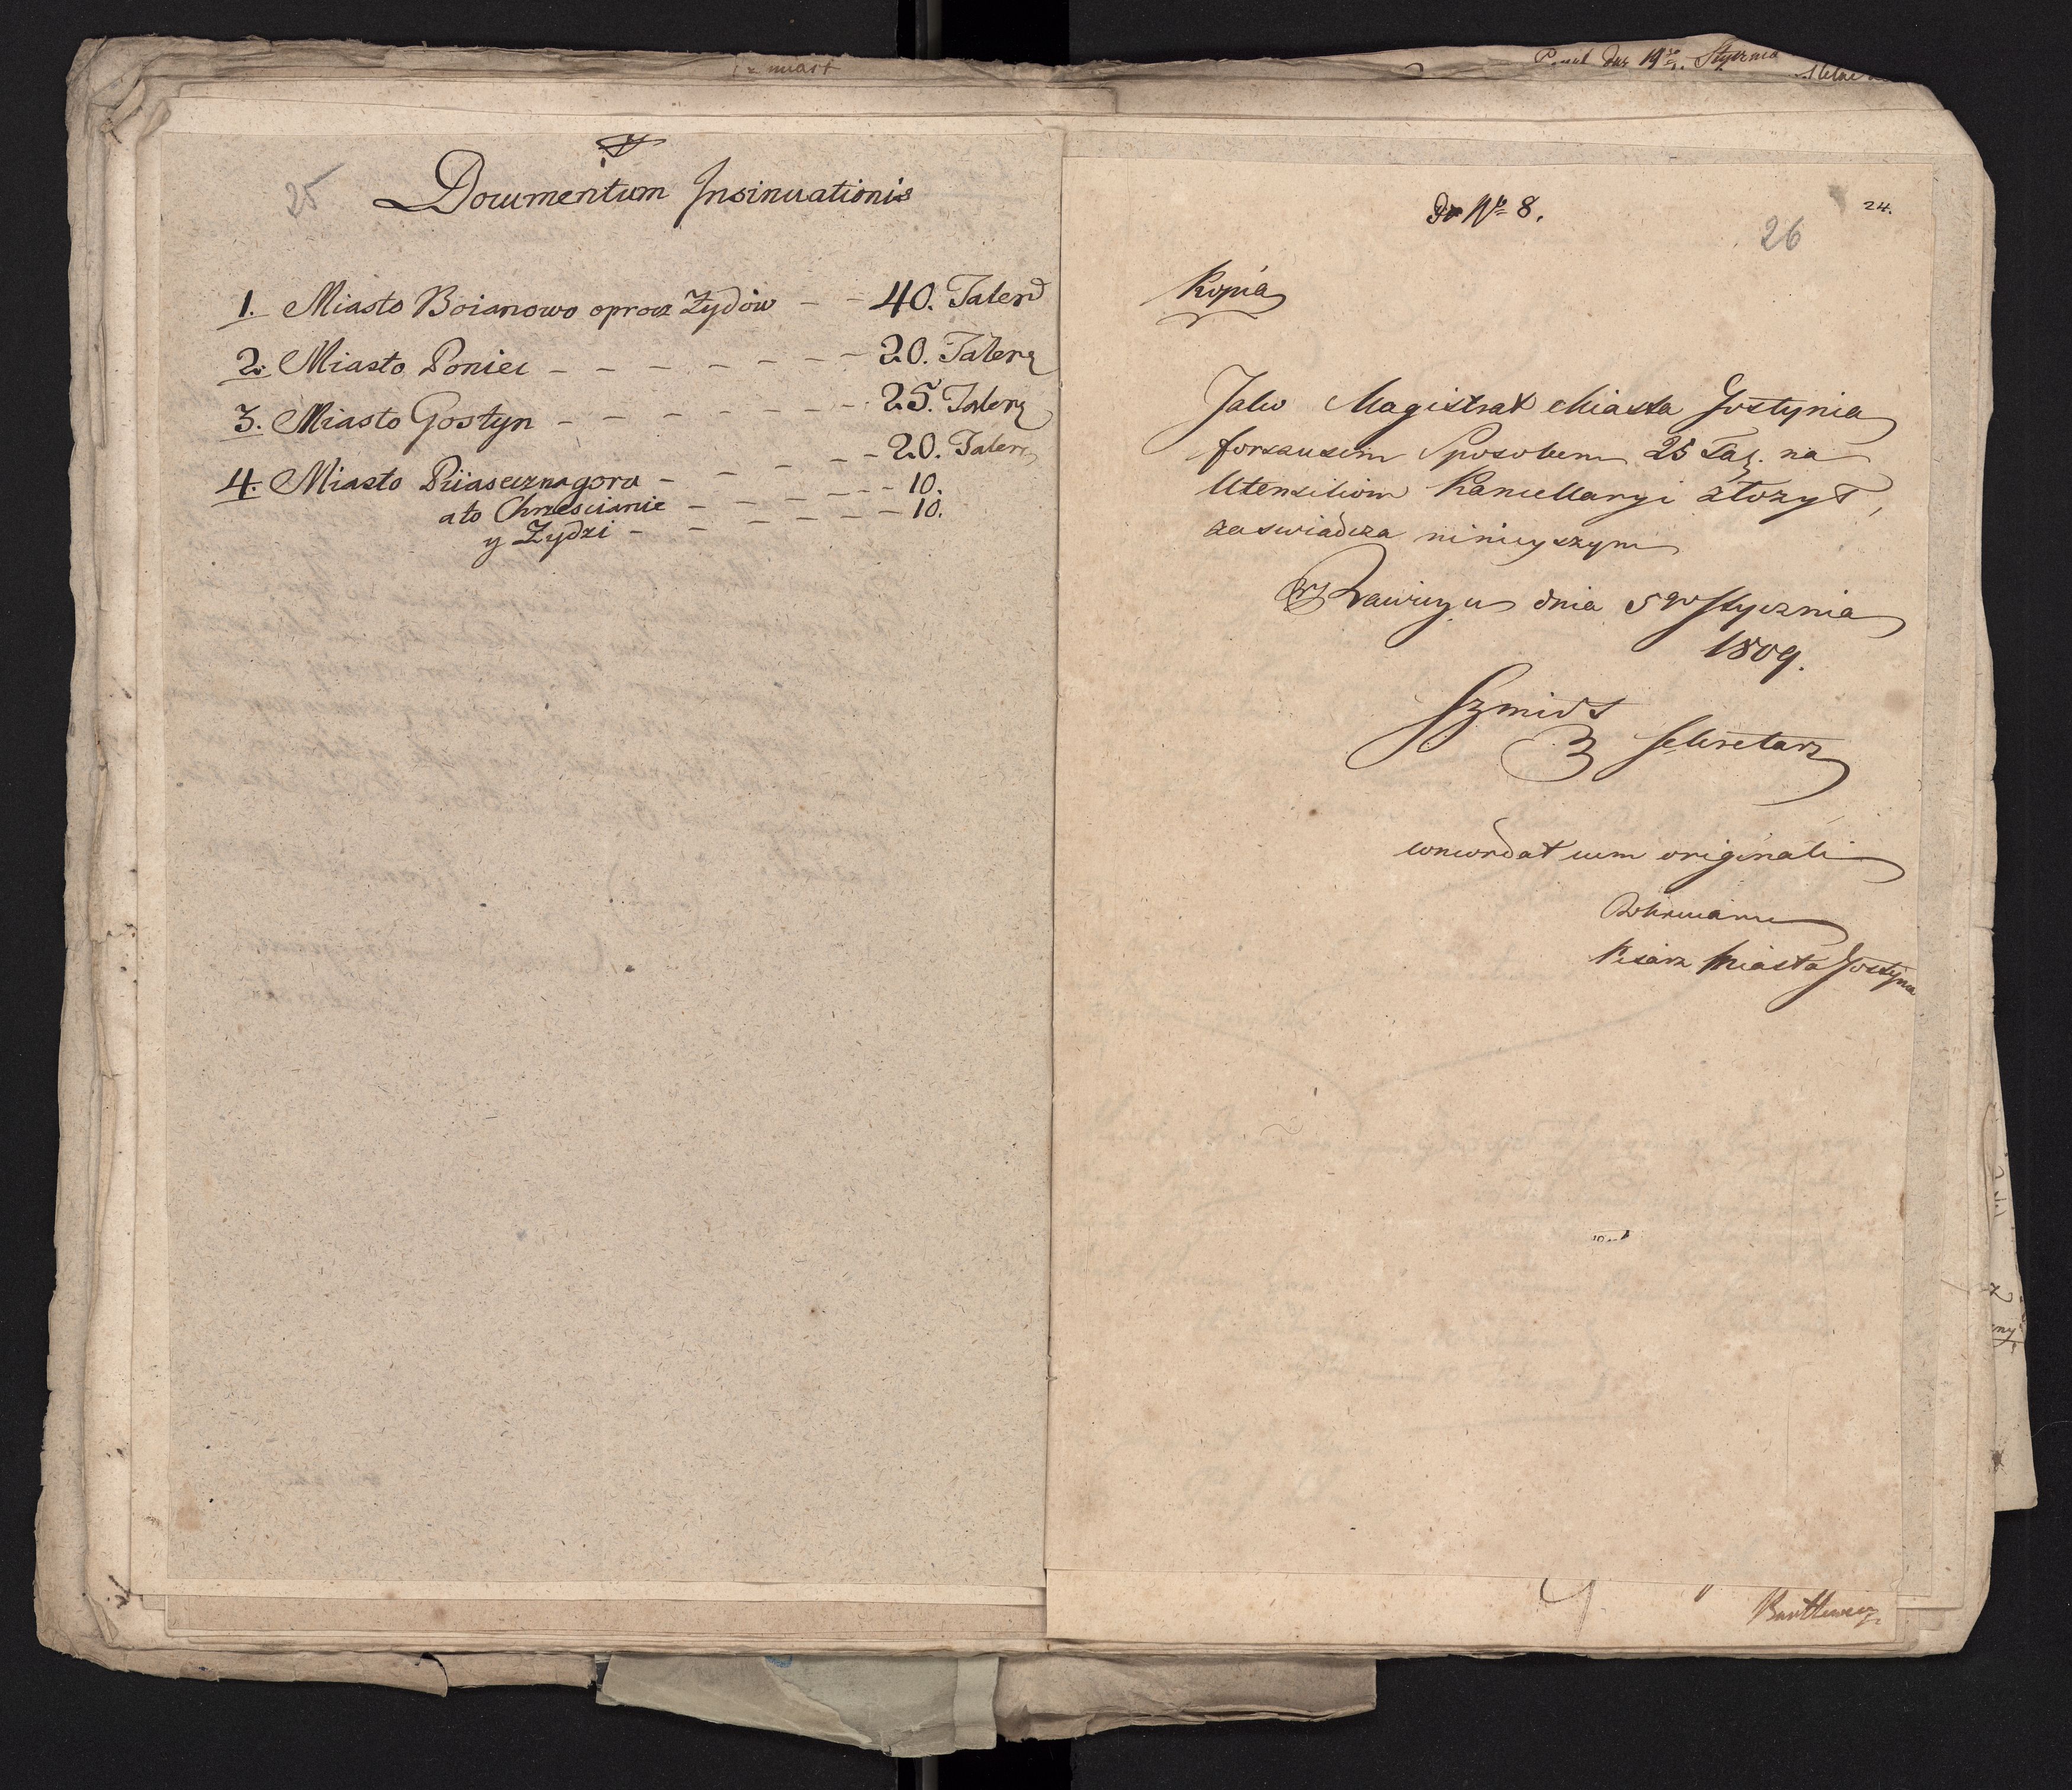 z miast
25
Documentum Insinuationis
1. Miasto Boianowo oprocz Żydów - - 40. Taler
2. Miasto Poniec - - - - - - 20. Talery
3. Miasto Gostyn - - - - - - 25. Talery
4. Miasto Piiaseczna gora - - - - - 20. Talery
ato Chrzescianie - - - - - - 10.
y Żydzi - - - - - - 10.
19 Stycznia
do No 8.
24.
26
Kopia
Jako Magistrat Miasta Gostynia
forszusem Sposobem 25 Tal. na
Utensiliow Kancellaryi złozył,
zaswiadcza ninieyszym
w Rawiczu dnia 5go Stycznia
1809.
Szmidt
Sekretarz
concordat cum originali
Pisarz Miasta Gostynia